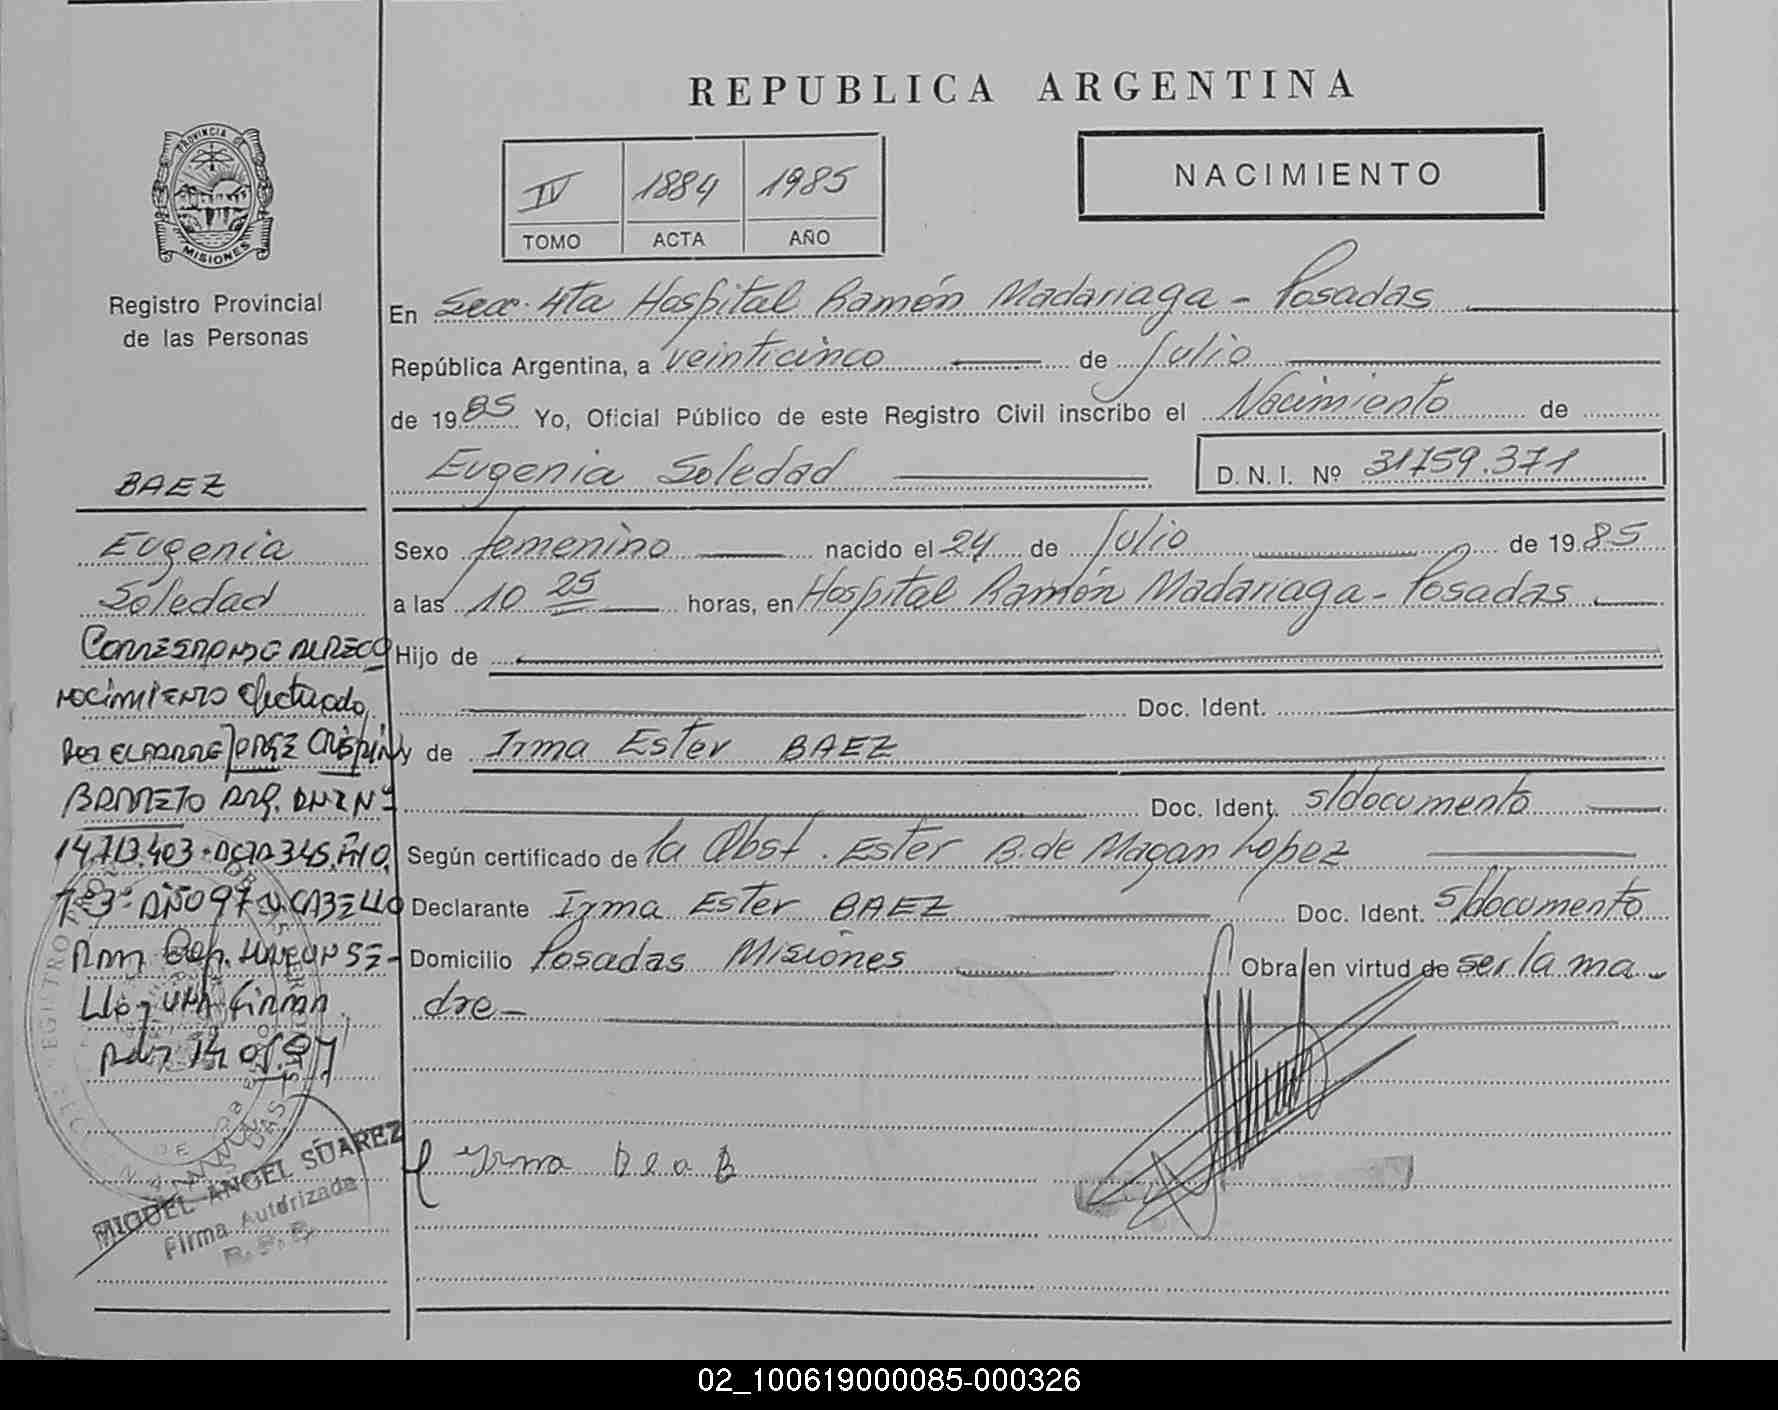 REPUBLICA ARGENTINA
PROVINCIA DE
MISIONES
Registro Provincial
de las Personas
IV 1884 1985
TOMO ACTA AÑO
NACIMIENTO
En Secc. 4ta Hospital Ramón Madariaga - Posadas
República Argentina, a veinticinco de Julio
de 1985 Yo, Oficial Público de este Registro Civil inscribo el Nacimiento de
Eugenia Soledad D. N. I. Nº 31759.371
BAEZ
Eugenia
Soledad
Sexo femenino nacido el 24 de Julio de 1985
a las 10 25 horas, en Hospital Ramón Madariaga - Posadas
Hijo de
Doc. Ident.
y de Irma Ester BAEZ
Doc. Ident. s/documento
Según certificado de la Obst. Ester B. de Magan Lopez
Declarante Irma Ester BAEZ Doc. Ident. s/documento
Domicilio Posadas Misiones Obra en virtud de ser la ma
dre-
Corresponde al reco
nocimiento efectuado
por el padre Jorge Crispin
BARRETO Arg. DNI Nº
14.713.403
MIGUEL ANGEL SUAREZ
Firma Autorizada
Irma
02_100619000085-000326